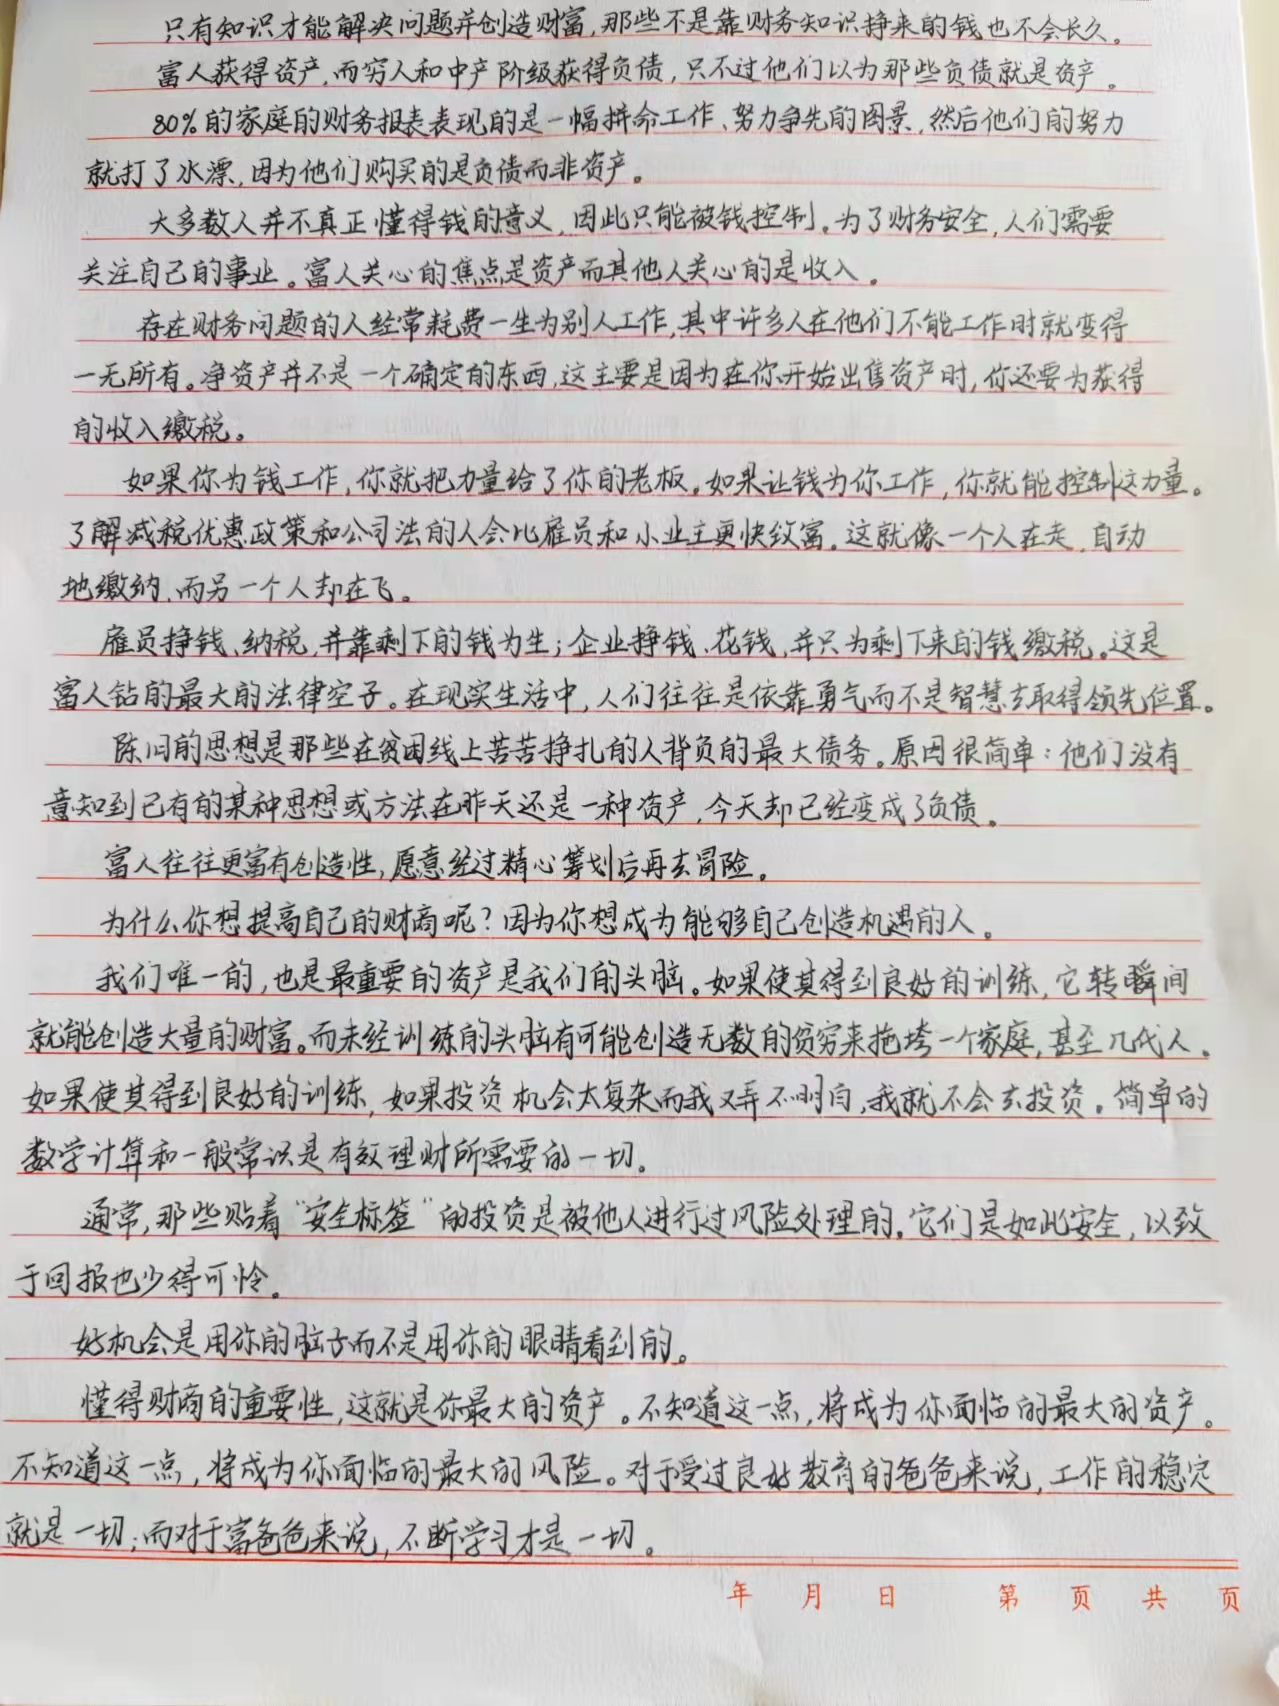 只有知识才能解决问题并创造财富,那些不是靠财务知识挣来的钱也不会长久。
富人获得资产,而穷人和中产阶级获得负债,只不过他们以为那些负债就是资产。
80%的家庭的财务报表表现的是一幅拼命工作、努力争先的图景,然后他们的努力
就打了水漂,因为他们购买的是负债而非资产。
大多数人并不真正懂得钱的意义,因此只能被钱控制。为了财务安全,人们需要
关注自己的事业。富人关心的焦点是资产而其他人关心的是收入。
存在财务问题的人经常耗费一生为别人工作,其中许多人在他们不能工作时就变得
一无所有。净资产并不是一个确定的东西,这主要是因为在你开始出售资产时,你还要为获得
的收入缴税。
如果你为钱工作,你就把力量给了你的老板。如果让钱为你工作,你就能控制这力量。
了解减税优惠政策和公司法的人会比雇员和小业主更快致富。这就像一个人在走,自动
地缴纳,而另一个人却在飞。
雇员挣钱、纳税,并靠剩下的钱为生;企业挣钱、花钱,并只为剩下来的钱缴税。这是
富人钻的最大的法律空子。在现实生活中,人们往往是依靠勇气而不是智慧去取得领先位置。
陈旧的思想是那些在贫困线上苦苦挣扎的人背负的最大债务。原因很简单:他们没有
意知到已有的某种思想或方法在昨天还是一种资产,今天却已经变成了负债。
富人往往更富有创造性,愿意经过精心筹划后再去冒险。
为什么你想提高自己的财商呢?因为你想成为能够自己创造机遇的人。
我们唯一的,也是最重要的资产是我们的头脑。如果使其得到良好的训练,它转瞬间
就能创造大量的财富。而未经训练的头脑有可能创造无数的贫穷来拖垮一个家庭,甚至几代人。
如果使其得到良好的训练,如果投资机会太复杂而我又弄不明白,我就不会去投资。简单的
数学计算和一般常识是有效理财所需要的一切。
通常,那些贴着“安全标签”的投资是被他人进行过风险处理的。它们是如此安全,以致
于回报也少得可怜。
好机会是用你的脑子而不是用你的眼睛看到的。
懂得财商的重要性,这就是你最大的资产。不知道这一点,将成为你面临的最大的资产。
不知道这一点,将成为你面临的最大的风险。对于受过良好教育的爸爸来说,工作的稳定
就是一切;而对于富爸爸来说,不断学习才是一切。
年 月 日 第 页 共 页